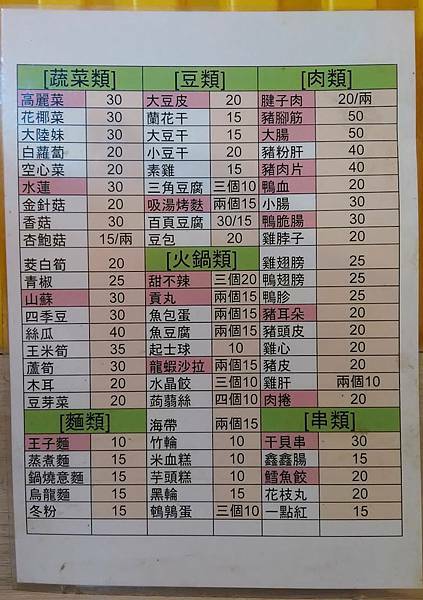 [蔬菜類] [豆類] [肉類]
高麗菜 30 大豆皮 20 腱子肉 20/兩
花椰菜 30 蘭花干 15 豬腳筋 50
大陸妹 30 大豆干 15 大腸 50
白蘿蔔 20 小豆干 20 豬粉肝 40
空心菜 20 素雞 15 豬肉片 40
水蓮 30 三角豆腐 三個10 鴨血 20
金針菇 20 吸湯烤麩 兩個15 小腸 30
香菇 30 百頁豆腐 30/15 鴨脆腸 30
杏鮑菇 15/兩 豆包 20 雞脖子 20
茭白筍 20 [火鍋類] 雞翅膀 25
青椒 25 甜不辣 三個20 鴨翅膀 25
山蘇 30 貢丸 兩個15 鴨胗 25
四季豆 30 魚包蛋 兩個15 豬耳朵 20
絲瓜 40 魚豆腐 兩個15 豬頭皮 20
王米筍 35 起士球 10 雞心 20
蘆筍 30 龍蝦沙拉 兩個15 豬皮 20
木耳 20 水晶餃 三個10 雞肝 兩個10
豆芽菜 20 蒟蒻絲 四個10 肉捲 20
[麵類] 海帶 兩個15 [串類]
王子麵 10 竹輪 10 干貝串 30
蒸煮麵 15 米血糕 10 鑫鑫腸 15
鍋燒意麵 15 芋頭糕 10 鱈魚餃 20
烏龍麵 15 黑輪 15 花枝丸 20
冬粉 15 鵪鶉蛋 三個10 一點紅 15